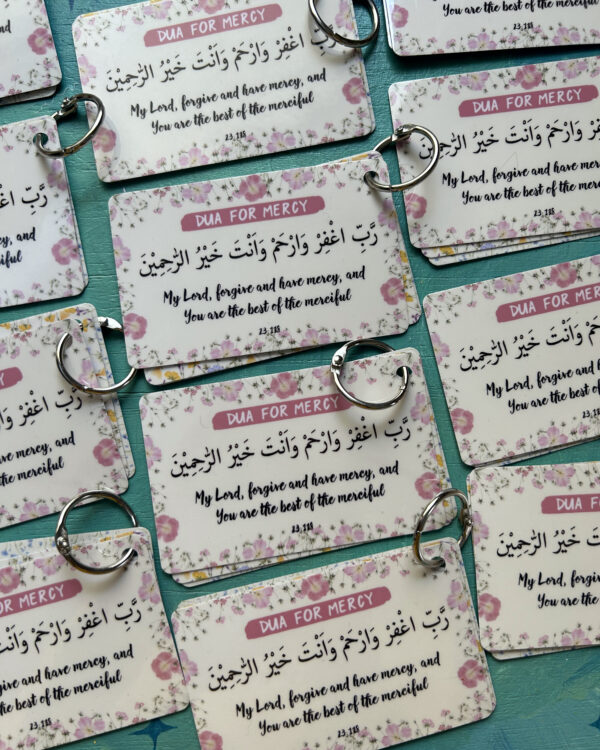 DUA FOR MERCY
رَّبِّ اغْفِرْ وَارْحَمْ وَاَنْتَ خَيْرُ الرّٰحِمِيْنَ
My Lord, forgive and have mercy, and
You are the best of the merciful
23,118
You are the best of the merciful
23,118
DUA FOR MERCY
وَارْحَمْ وَاَنْتَ خَيْرُ الرّٰحِمِيْنَ
My Lord, forgive and have
You are the best of the
23,118
and
DUA FOR MERCY
رَّبِّ اغْفِرْ وَارْحَمْ وَاَنْتَ خَيْرُ الرّٰحِمِيْنَ
My Lord, forgive and have mercy, and
You are the best of the merciful
23,118
DUA FOR
وَاَنْتَ خَيْرُ الرّٰحِمِيْنَ
My Lord, forgive and
You are the best of
23,118
رَّبِّ اغْفِرْ
have mercy, and
the merciful
DUA FOR MERCY
رَّبِّ اغْفِرْ وَارْحَمْ وَاَنْتَ خَيْرُ الرّٰحِمِيْنَ
My Lord, forgive and have mercy, and
You are the best of the merciful
23,118
DUA
خَيْرُ الرّٰحِمِيْنَ
My Lord,
You are the
FOR MERCY
رَّبِّ اغْفِرْ وَارْحَمْ
and have mercy, and
best of the merciful
23,118
DUA FOR MERCY
رَّبِّ اغْفِرْ وَارْحَمْ وَاَنْتَ خَيْرُ الرّٰحِمِيْنَ
My Lord, forgive and have mercy, and
You are the best of the merciful
23,118